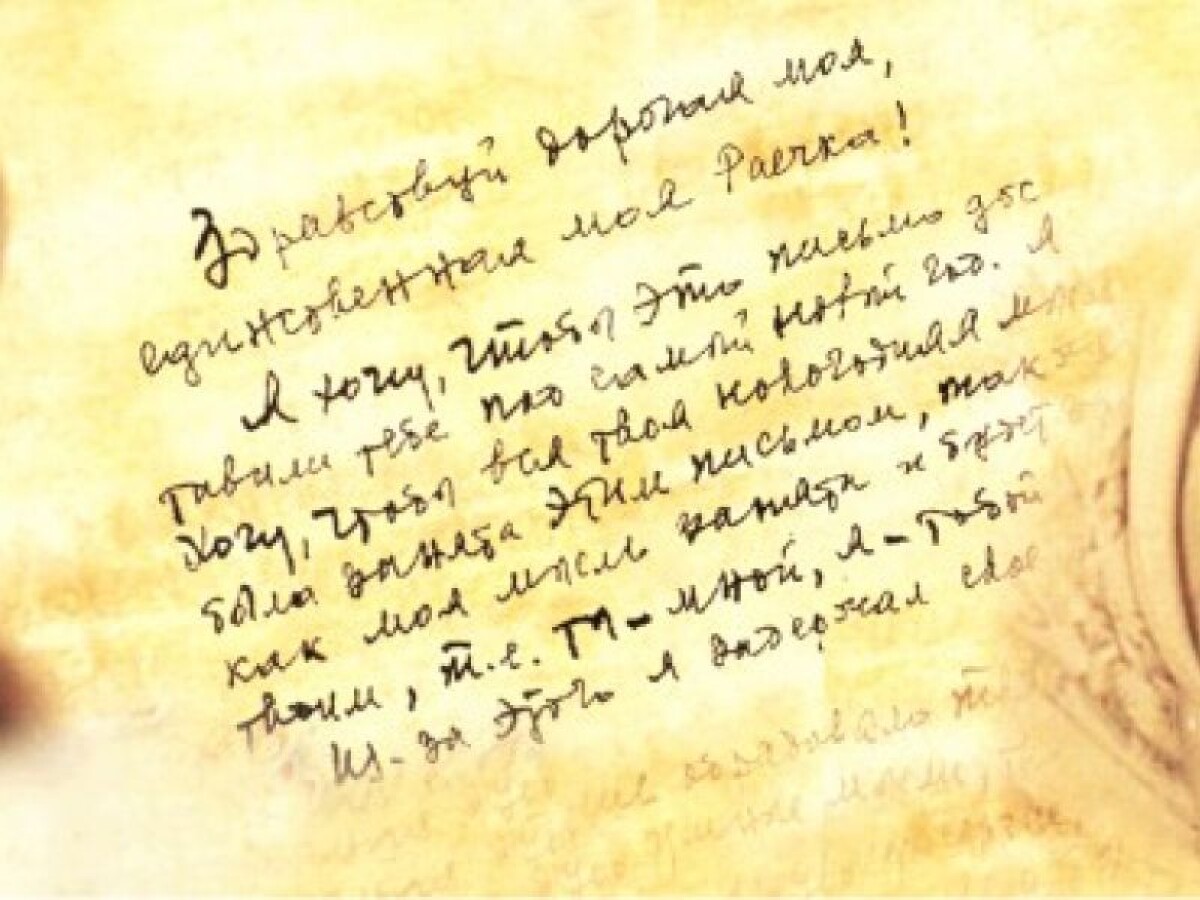 Здравсовуй дорогая моя,
единсовенная моя Раечка!
Я хочу, чтобы это письмо дос
тавили тебе под самый новый год. Я
хочу, чтобы вся твоя новогодняя
была занята этим письмом, так
как моя мысль занята и будет
твоим, т.е. ты - мной, я - тобой
Из-за этого я задержал свое